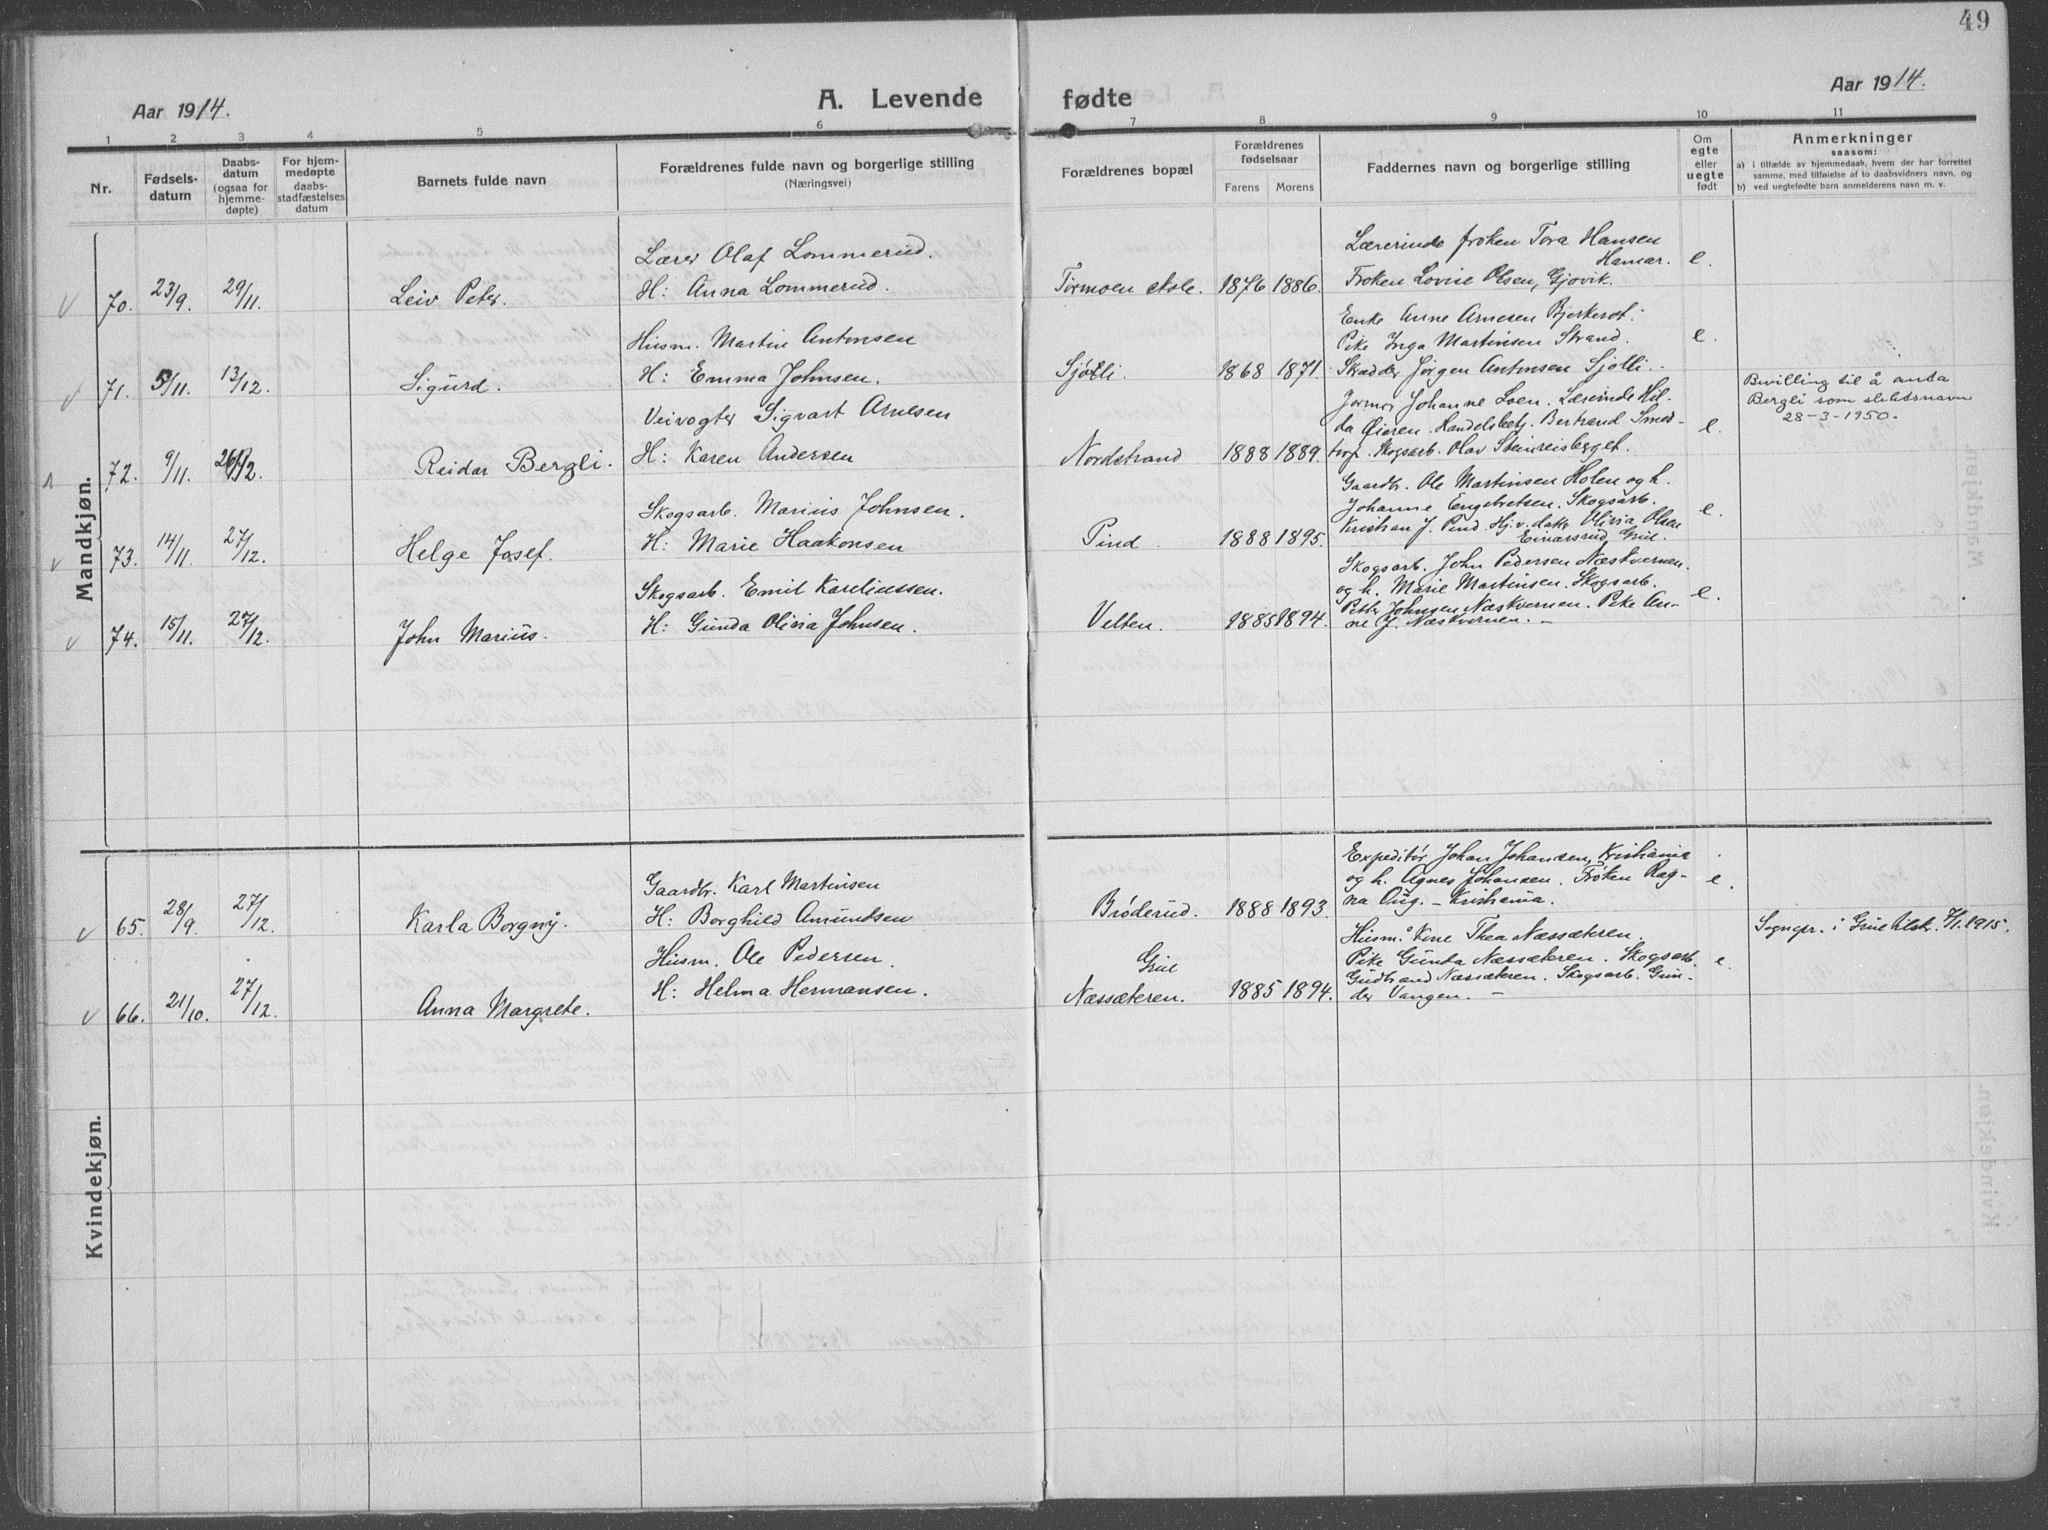 49
Aar 1914.
A. Levende fødte
Aar 1914.
1 2 3 4 5 6 7 8 9 10 11
Nr.
Fødsels-
datum
Daabs-
datum
(ogsaa for
hjemme-
døpte)
For hjem-
medøpte
daabs-
stadfæstelses
datum
Barnets fulde navn
Forældrenes fulde navn og borgerlige stilling
(Næringsvei)
Forældrenes bopæl
Forældrenes
fødselsaar
Farens Morens
Faddernes navn og borgerlige stilling
Om
egte
eller
uegte
født
Anmerkninger
saasom:
a) i tilfælde av hjemmedaab, hvem der har forrettet
samme, med tilføielse af to daabsvidners navn, og
b) ved uegtefødte barn anmelderens navn m. v.
Mandkjøn.
70. 23/9. 29/11. Leiv Peter.
Lærer Olaf Lommerud.
H: Anna Lommerud.
Tormoen skole. 1876 1886.
Lærerinde frøken Tora Hansen
Hamar.
Frøken Lovise Olsen, Gjøvik.
e.
71. 5/11. 13/12. Sigurd.
Husm. Martin Antonsen
H: Emma Johnsen.
Sjøli. 1868 1871.
Enke Anne Arnesen Bjerkerot.
Pike Inga Martinsen Strand.
Skrædder Jørgen Antonsen Sjøli.
e.
72. 9/11. 26/12. Reidar Bergli.
Veivogter Sigvart Arnesen
H: Karen Andersen
Nordstrand 1888 1889.
Jormor Johanne Loen. Lærerinde Hil-
da Øieren. Handelsbetj. Bertrand Smed-
torp. Skogsarb. Olav Steinreisberget.
e.
Bevilling til å anta
Bergli som slektsnavn
28-3-1950.
73. 14/11. 27/12. Helge Josef.
Skogsarb. Marius Johnsen.
H: Marie Haakonsen
Pind. 1888 1895.
Gaardbr. Ole Martinsen Holen og h.
Johanne Engebretsen. Skogsarb.
Kristian J. Pind. Hj.v. datter Olivia Olsen
Einarsrud, Grue.
e.
74. 15/11. 27/12. John Marius.
Skogsarb. Emil Karelinssen.
H: Gunda Olivia Johnsen.
Velten. 1885 1894.
Skogsarb. John Pedersen Næstkvernen
og h. Marie Martinsen. Skogsarb.
Petter Johnsen Næskvernen. Pike An-
ne J. Næskvernen. —
e.
Kvindekjøn.
65. 28/9. 27/12. Karla Borgny.
Gaardbr. Karl Martinsen
H: Borghild Amundsen
Brøderud. 1888 1893.
Expeditør Johan Johansen, Kristiania
og h. Agnes Johansen. Frøken Rag-
na Aug. – Kristiania.
e.
66. 21/10. 27/12. Anna Margrete.
Husm. Ole Pedersen
H: Helma Hermansen.
Grue
Næssæteren. 1885 1894.
Husm.kone Thea Næssæteren.
Pike Gunda Næssæteren. Skogsarb.
Gudbrand Næssæteren. Skogsarb. Gun-
der Vangen. —
e.
Sognepr. i Grue tilsk. 7/1. 1915.